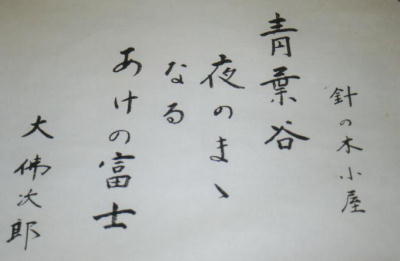 針の木小屋
青葉谷
夜のまゝ
なる
あけの富士
大佛次郎